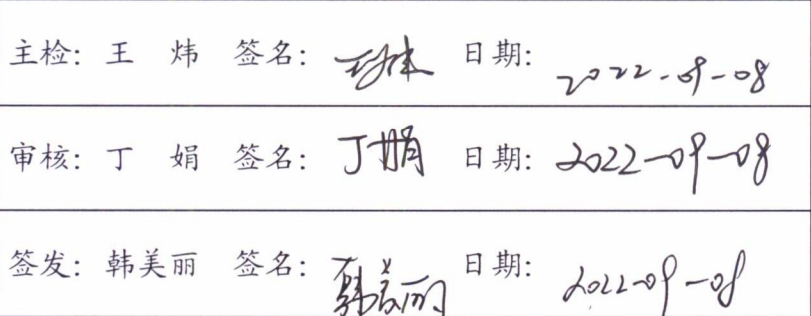 主检：王 炜 签名：王炜 日期：2022-09-08
审核：丁 娟 签名：丁娟 日期：2022-09-08
签发：韩美丽 签名：韩美丽 日期：2022-09-08